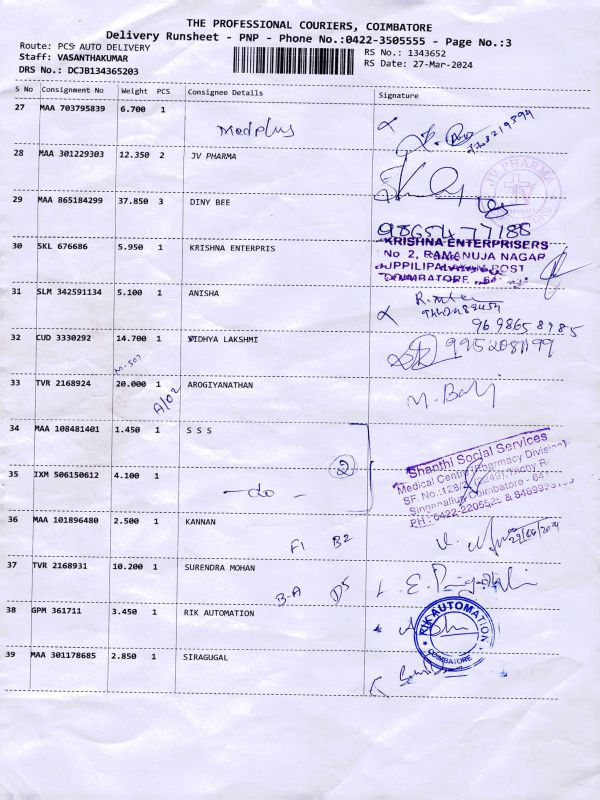 THE PROFESSIONAL COURIERS, COIMBATORE
Delivery Runsheet - PNP - Phone No.:0422-3505555 - Page No.:3
Route: PCS AUTO DELIVERY
RS No.: 1343652
Staff: VASANTHAKUMAR
RS Date: 27-Mar-2024
DRS No.: DCJB134365203
S No Consignment No Weight PCS Consignee Details Signature
27 MAA 703795839 6.700 1
Medplus
28 MAA 301229303 12.350 2 JV PHARMA
JV PHARMA
29 MAA 865184299 37.850 3 DINY BEE
9865477188
30 SKL 676686 5.950 1 KRISHNA ENTERPRIS
KRISHNA ENTERPRISERS
No 2, RAMANUJA NAGAR
UPPILIPALAYAM POST
COIMBATORE
31 SLM 342591134 5.100 1 ANISHA
9698658985
32 CUD 3330292 14.700 1 VIDHYA LAKSHMI
33 TVR 2168924 20.000 1 AROGIYANATHAN
A/02
34 MAA 108481401 1.450 1 S S S
Shanthi Social Services
Medical Centre (Pharmacy Division)
35 IXM 506150612 4.100 1
- do -
2
Singanallur, Coimbatore - 64
PH: 0422-2205525 &
36 MAA 101896480 2.500 1 KANNAN
F1 B2
37 TVR 2168931 10.200 1 SURENDRA MOHAN
B-A D5
38 GPM 361711 3.450 1 RIK AUTOMATION
RIK AUTOMATION
COIMBATORE
39 MAA 301178685 2.850 1 SIRAGUGAL